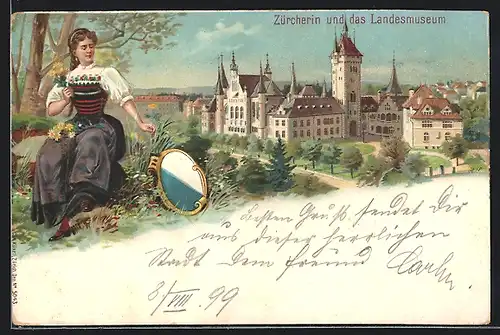 Zürcherin und das Landesmuseum
Besten Gruß sendet Dir
aus dieser herrlichen
Stadt Dein Freund
3/VIII. 99